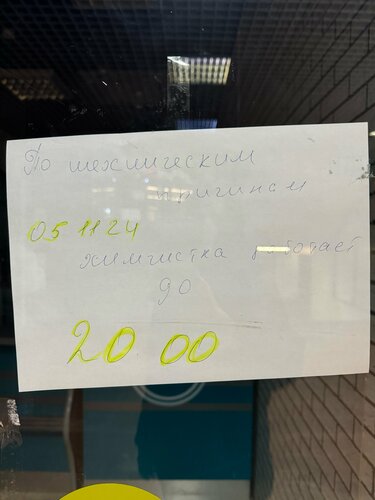 По техническим
причинам
05 11 24
химчистка работает
до
20 00